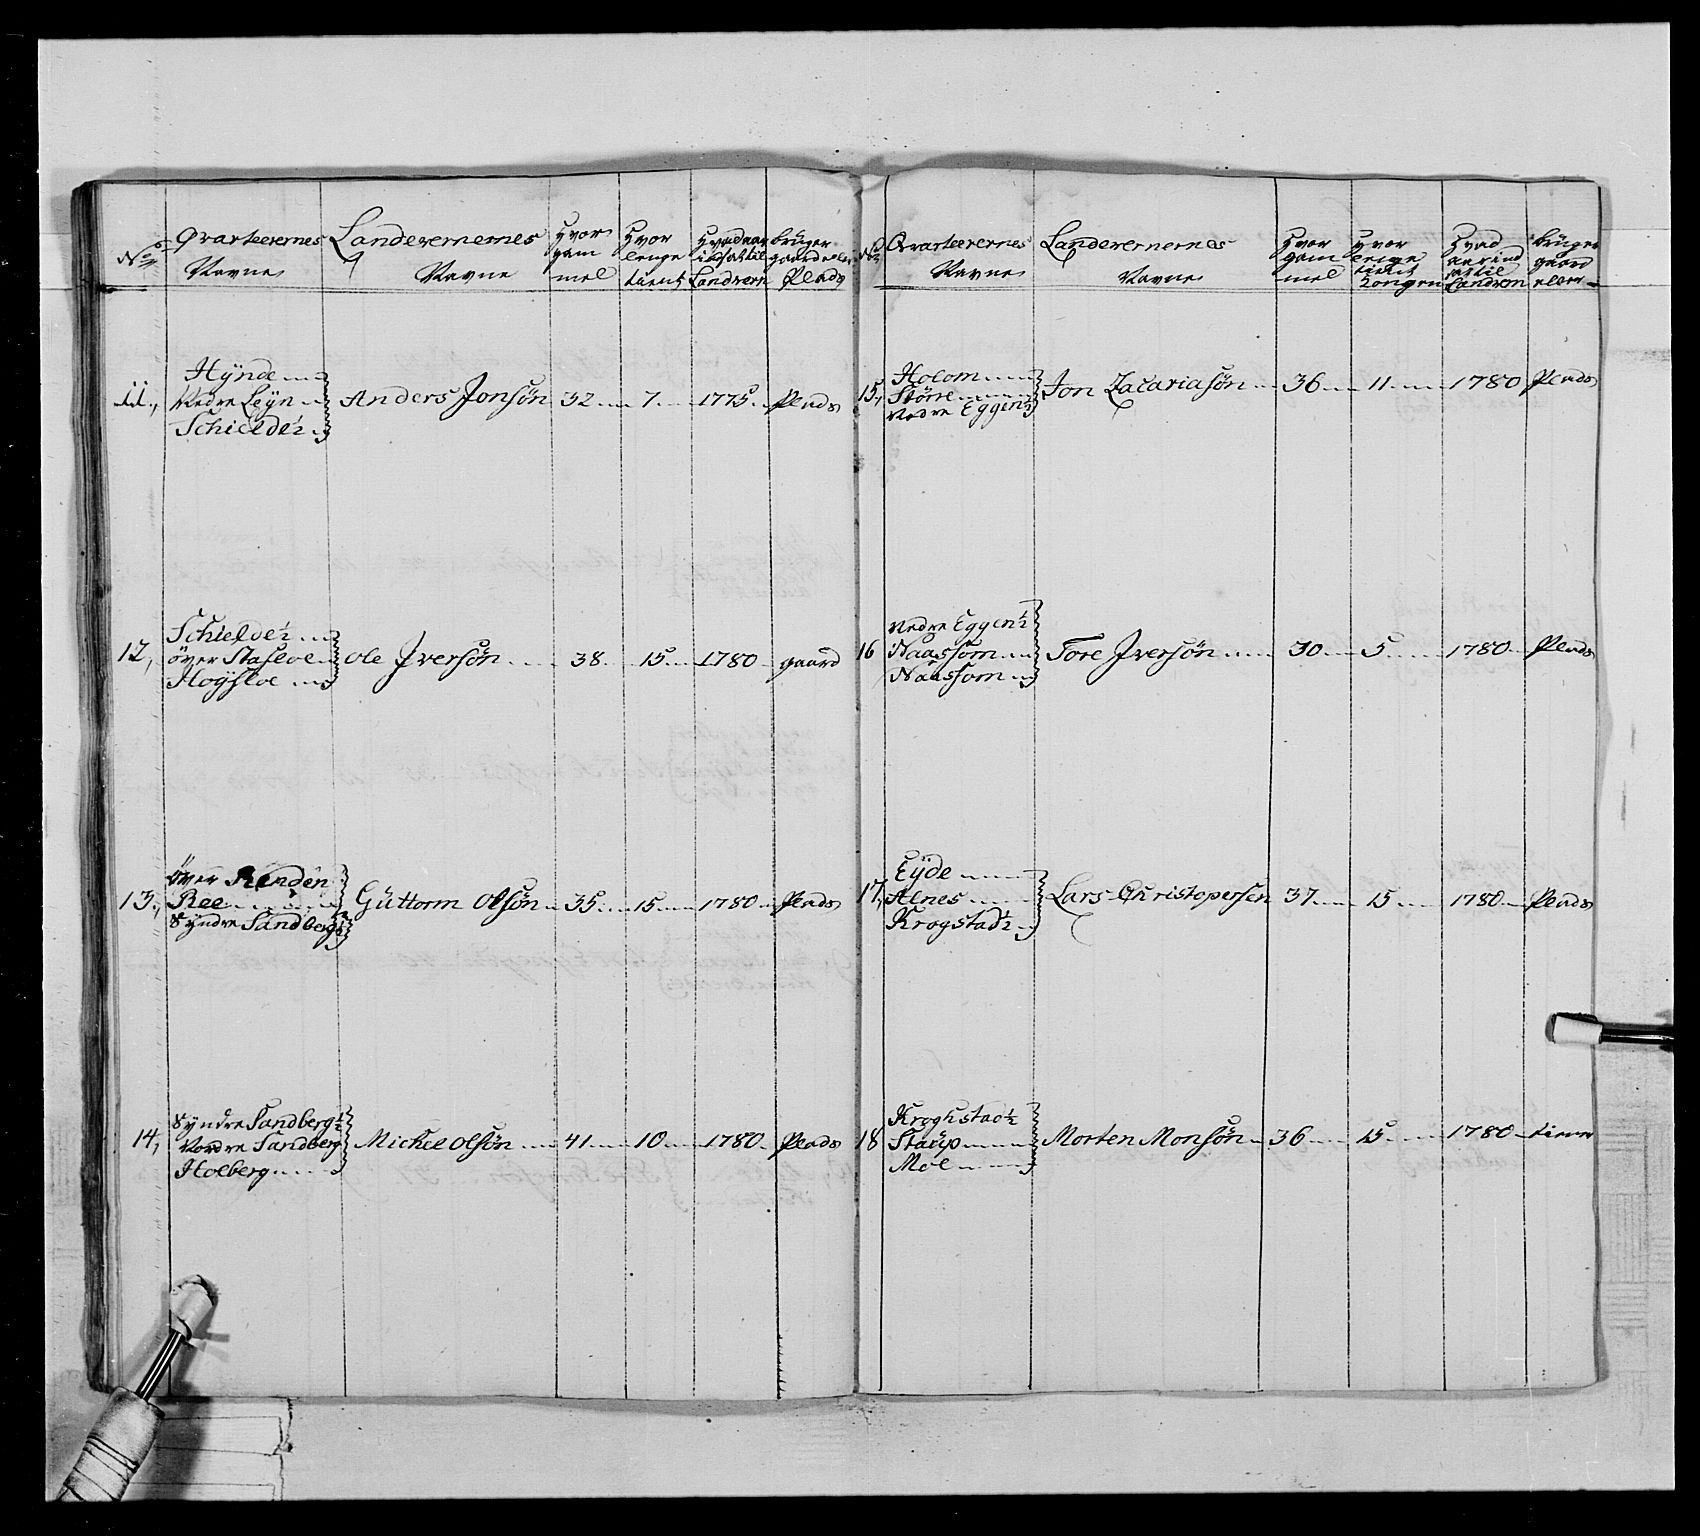 No Qvarteerernes Navne Landevernernes Navne Hvor gammel Hvor lenge tient Hvad aar indsat til Landvern bruger gaard eller Plads
11, Hÿnde
Nedre Leÿn
Schielde ½
Anders Jonsön 32 7 1775 Plads
12, Schielde ½
över Stasloe
Hoÿsloe
Ole Jversön 38 15 1780 gaard
13, över Renden
Ree
Syndre Sandberg ½
Güttorm Olsön 35 15 1780 Plads
14, Syndre Sandberg ½
Nordre Sandberg
Holberg
Mickel Olsön 41 10 1780 Plads
No Qvarteerernes Navne Landevernernes Navne Hvor gammel Hvor lenge tient Kongen Hvad aar indsat til Landvern bruger gaard eller
15, Holom
Större
Nedre Eggen ½
Jon Zacariasön 36 11 1780 Plads
16 Nedre Eggen ½
Naassom
Naassom
Tore Jversön 30 5 1780 Plads
17, Eÿde
Alnes
Krogstad ½
Lars Christopersen 37 15 1780 Plads
18 Kroghstad ½
Staüp
Moe
Morten Monsön 36 15 1780 tiener